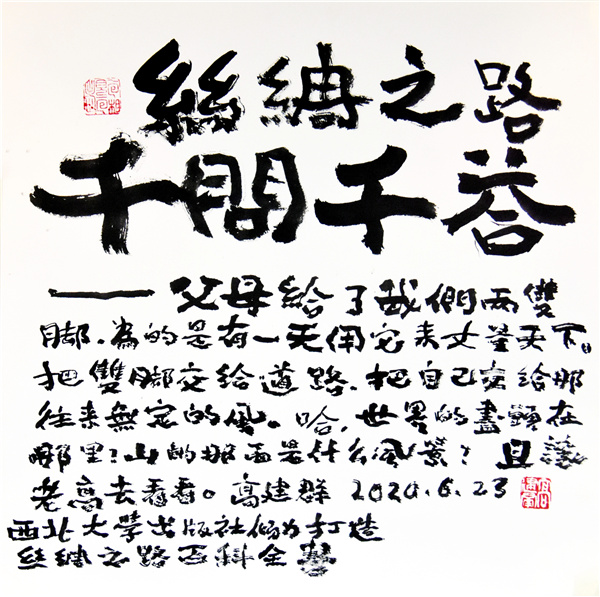 絲綢之路
千問千答
——父母給了我們兩雙
脚.為的是有一天用它来丈量天下。
把雙脚交給道路.把自己交給那
往来無定的風。哈.世界的盡頭在
哪里?山的那面是什么風景?且讓
老高去看看。高建群2020.6.23
西北大學出版社傾力打造
絲綢之路百科全書